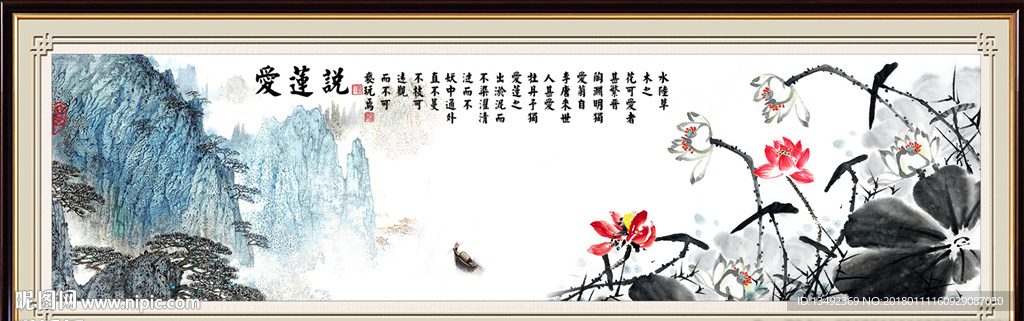 愛蓮説
水陸草
木之
花可愛者
甚繁晉
陶淵明獨
愛菊自
李唐來世
人甚愛
牡丹予獨
愛蓮之
出淤泥而
不染濯清
漣而不
妖中通外
直不蔓
不枝可
遠觀
而不可
褻玩焉
昵图网 www.nipic.com
ID:13492369 NO:20180111160929087030